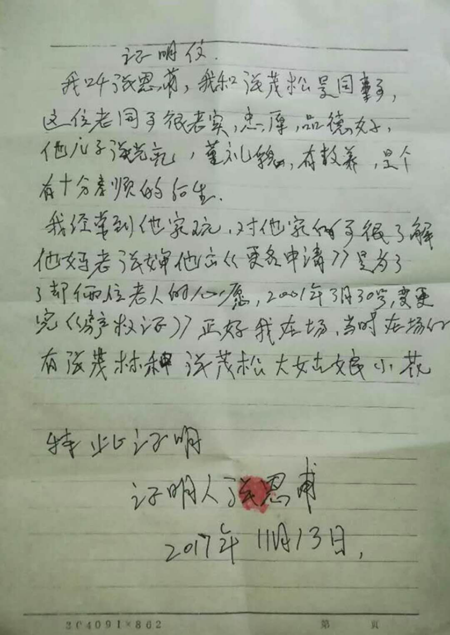 证明仪
我叫张恩甫，我和张茂松是同事，
这位老同事很老实，忠厚，品德好，
他儿子张光 ，董礼貌，有教养，是个
有十分孝顺的后生。
我经常到他家玩，对他家的事很了解
他妈老 他 《更名申请》是为了
了却俩位老人的心愿，2001年3月30号，变更
完《房产权证》正好我在场，当时在场的
有张茂林和张茂松大女 娘小花
特此证明
证明人张恩甫
2017年11月13日，
304091×862 第 页